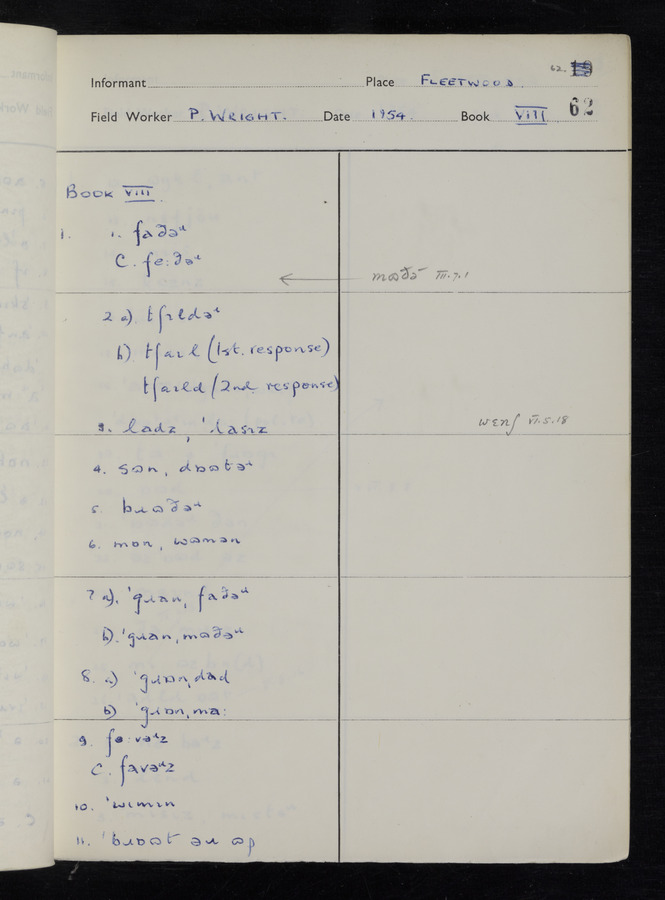 62. 19
Informant Place FLEETWOOD
Field Worker P. WRIGHT. Date 1954. Book VIII 62
BOOK VIII.
1. 1. faðəʴ
C. fe:ðəʴ
mʊðəʴ III.7.1
2 a). tʃɪldəʴ
b) tʃaɪl (1st. response)
tʃaɪld (2nd response)
3. ladz, ˈlasɪz wɛnʃ VI.5.18
4. sʊn, dɒʊtəʴ
5. bɹʊðəʴ
6. mon, wʊmən
7 a). ˈgɹanˌfaðəʴ
b). ˈgɹanˌmʊðəʴ
8. a) ˈgɹɒnˌdad
b) ˈgɹɒnˌma:
9. fe:vəʴz
C. favəʴz
10. ˈwɪmɪn
11. ˈbɹɒʊt əɹ ʊp